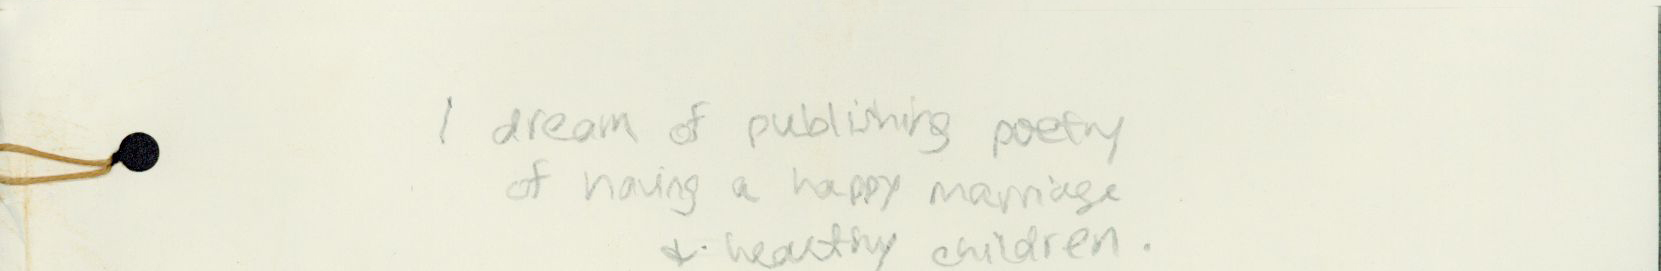 I dream of publishing poetry
of having a happy marriage
& healthy children.